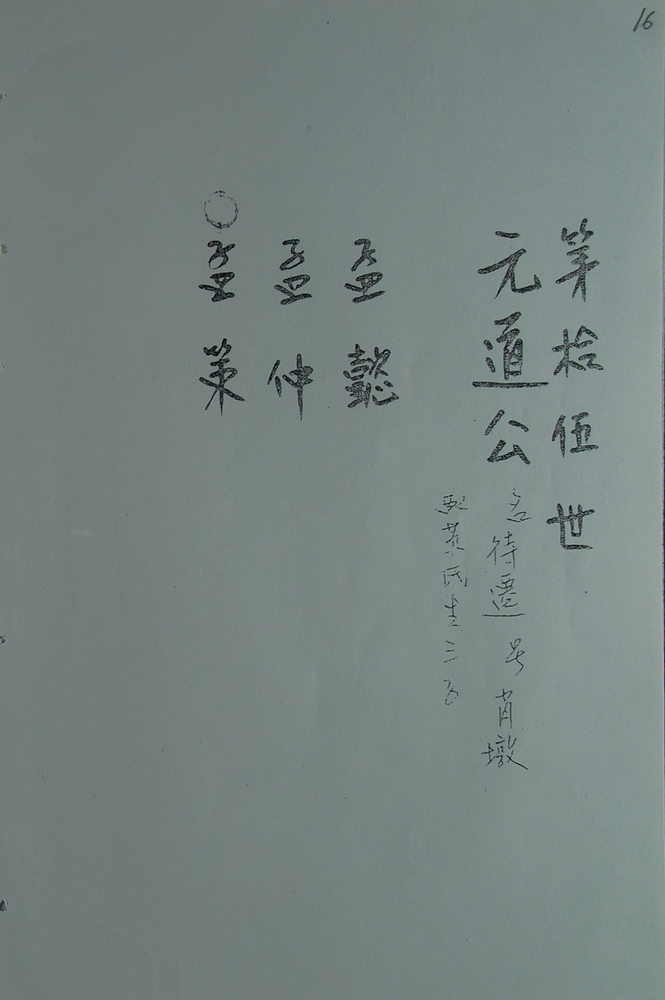 16
第拾伍世
元道公
名待遷号肖墩
配黄氏生三子
孟懿
孟仲
孟策